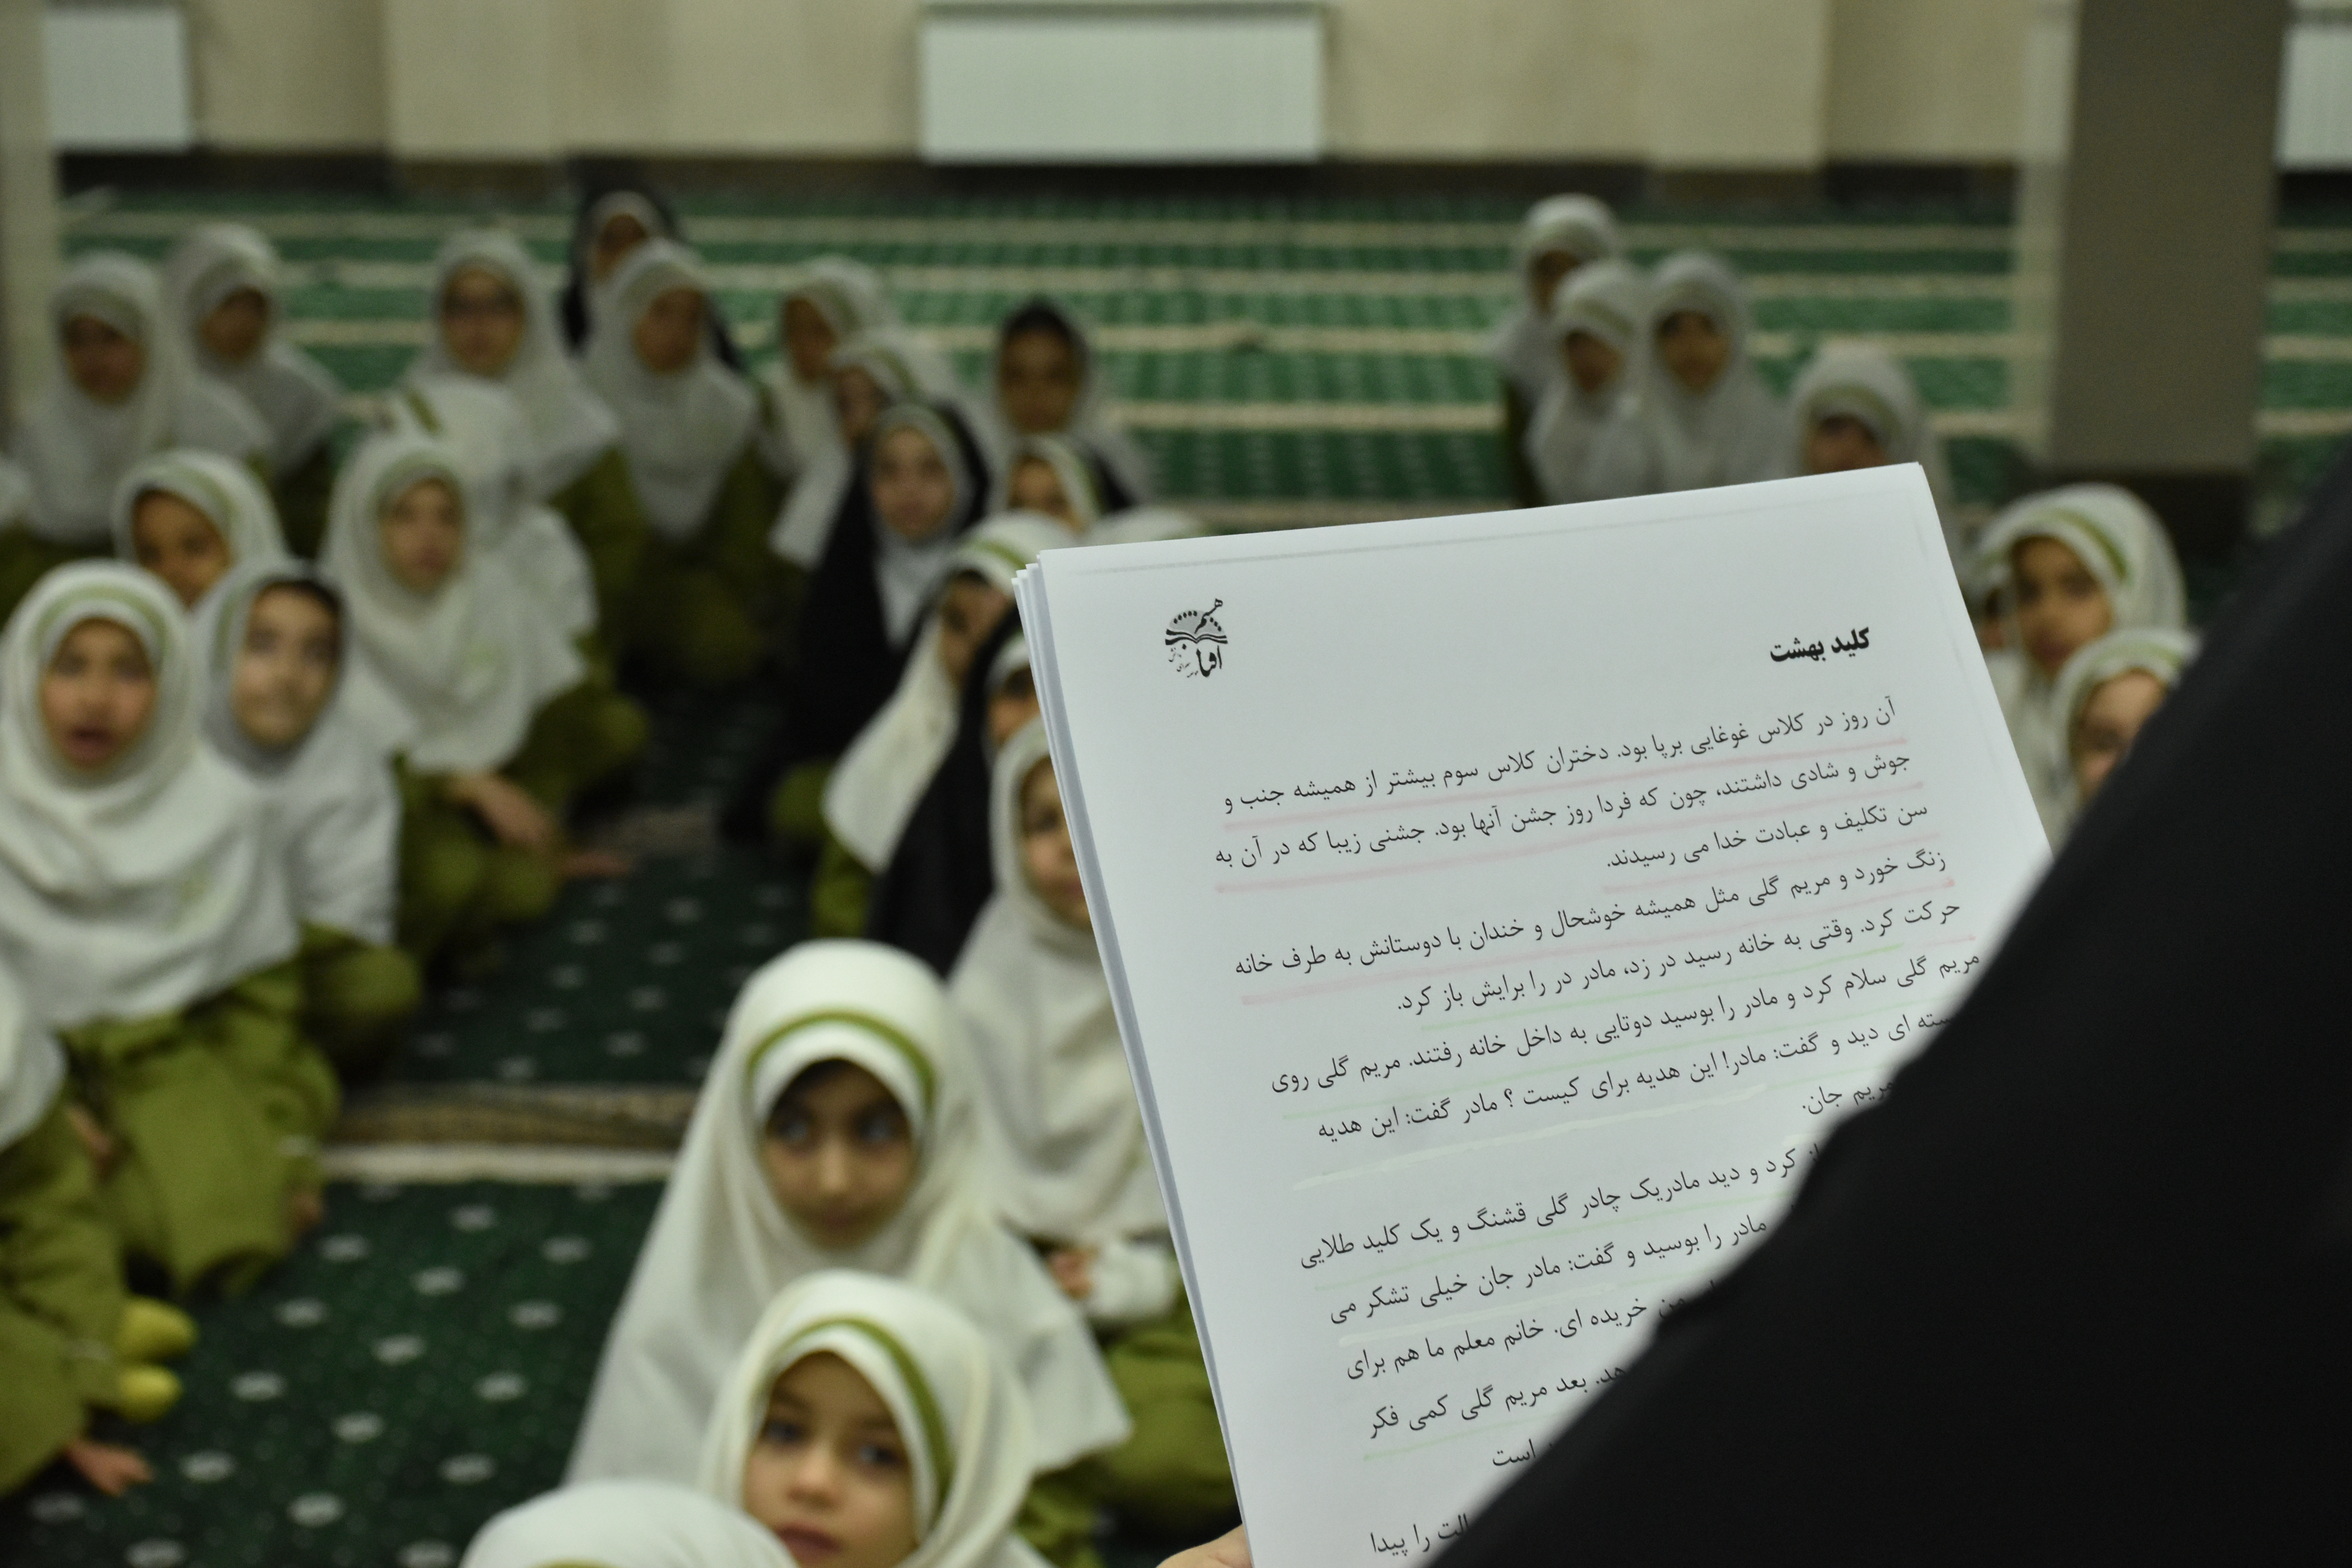 هشتم
آفتاب
کلید بهشت
آن روز در کلاس غوغایی برپا بود. دختران کلاس سوم بیشتر از همیشه جنب و
جوش و شادی داشتند، چون که فردا روز جشن آنها بود. جشنی زیبا که در آن به
سن تکلیف و عبادت خدا می رسیدند.
زنگ خورد و مریم گلی مثل همیشه خوشحال و خندان با دوستانش به طرف خانه
حرکت کرد. وقتی به خانه رسید در زد، مادر در را برایش باز کرد.
مریم گلی سلام کرد و مادر را بوسید دوتایی به داخل خانه رفتند. مریم گلی روی
ای دید و گفت: مادر! این هدیه برای کیست ؟ مادر گفت: این هدیه
مریم جان.
کرد و دید مادریک چادر گلی قشنگ و یک کلید طلایی
مادر را بوسید و گفت: مادر جان خیلی تشکر می
من خریده ای. خانم معلم ما هم برای
بعد مریم گلی کمی فکر
است
را پیدا